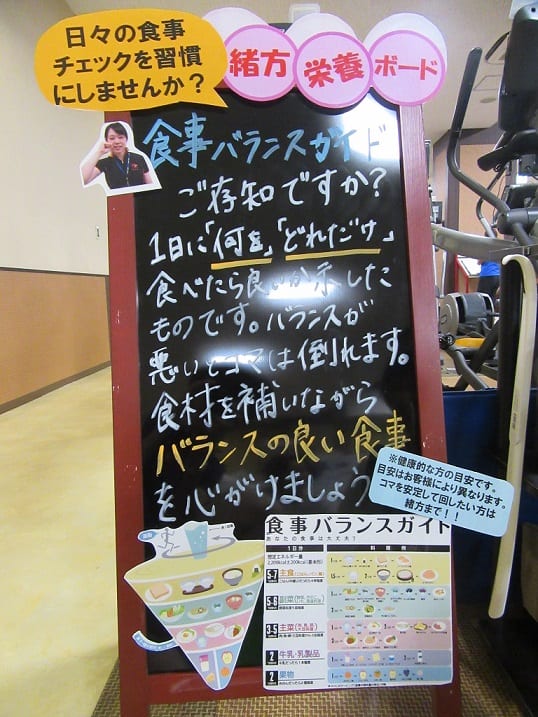 日々の食事
チェックを習慣
にしませんか？
緒方 栄養 ボード
食事バランスガイド
ご存知ですか？
1日に「何を」「どれだけ」
食べたら良いか示した
ものです。バランスが
悪いとコマは倒れます。
食材を補いながら
バランスの良い食事
を心がけましょう
※健康的な方の目安です。
目安はお客様により異なります。
コマを安定して回したい方は
緒方まで！！
食事バランスガイド
あなたの食事は大丈夫？
1日分
料理例
5-7 主食
5-6 副菜
3-5 主菜
2 牛乳・乳製品
2 果物